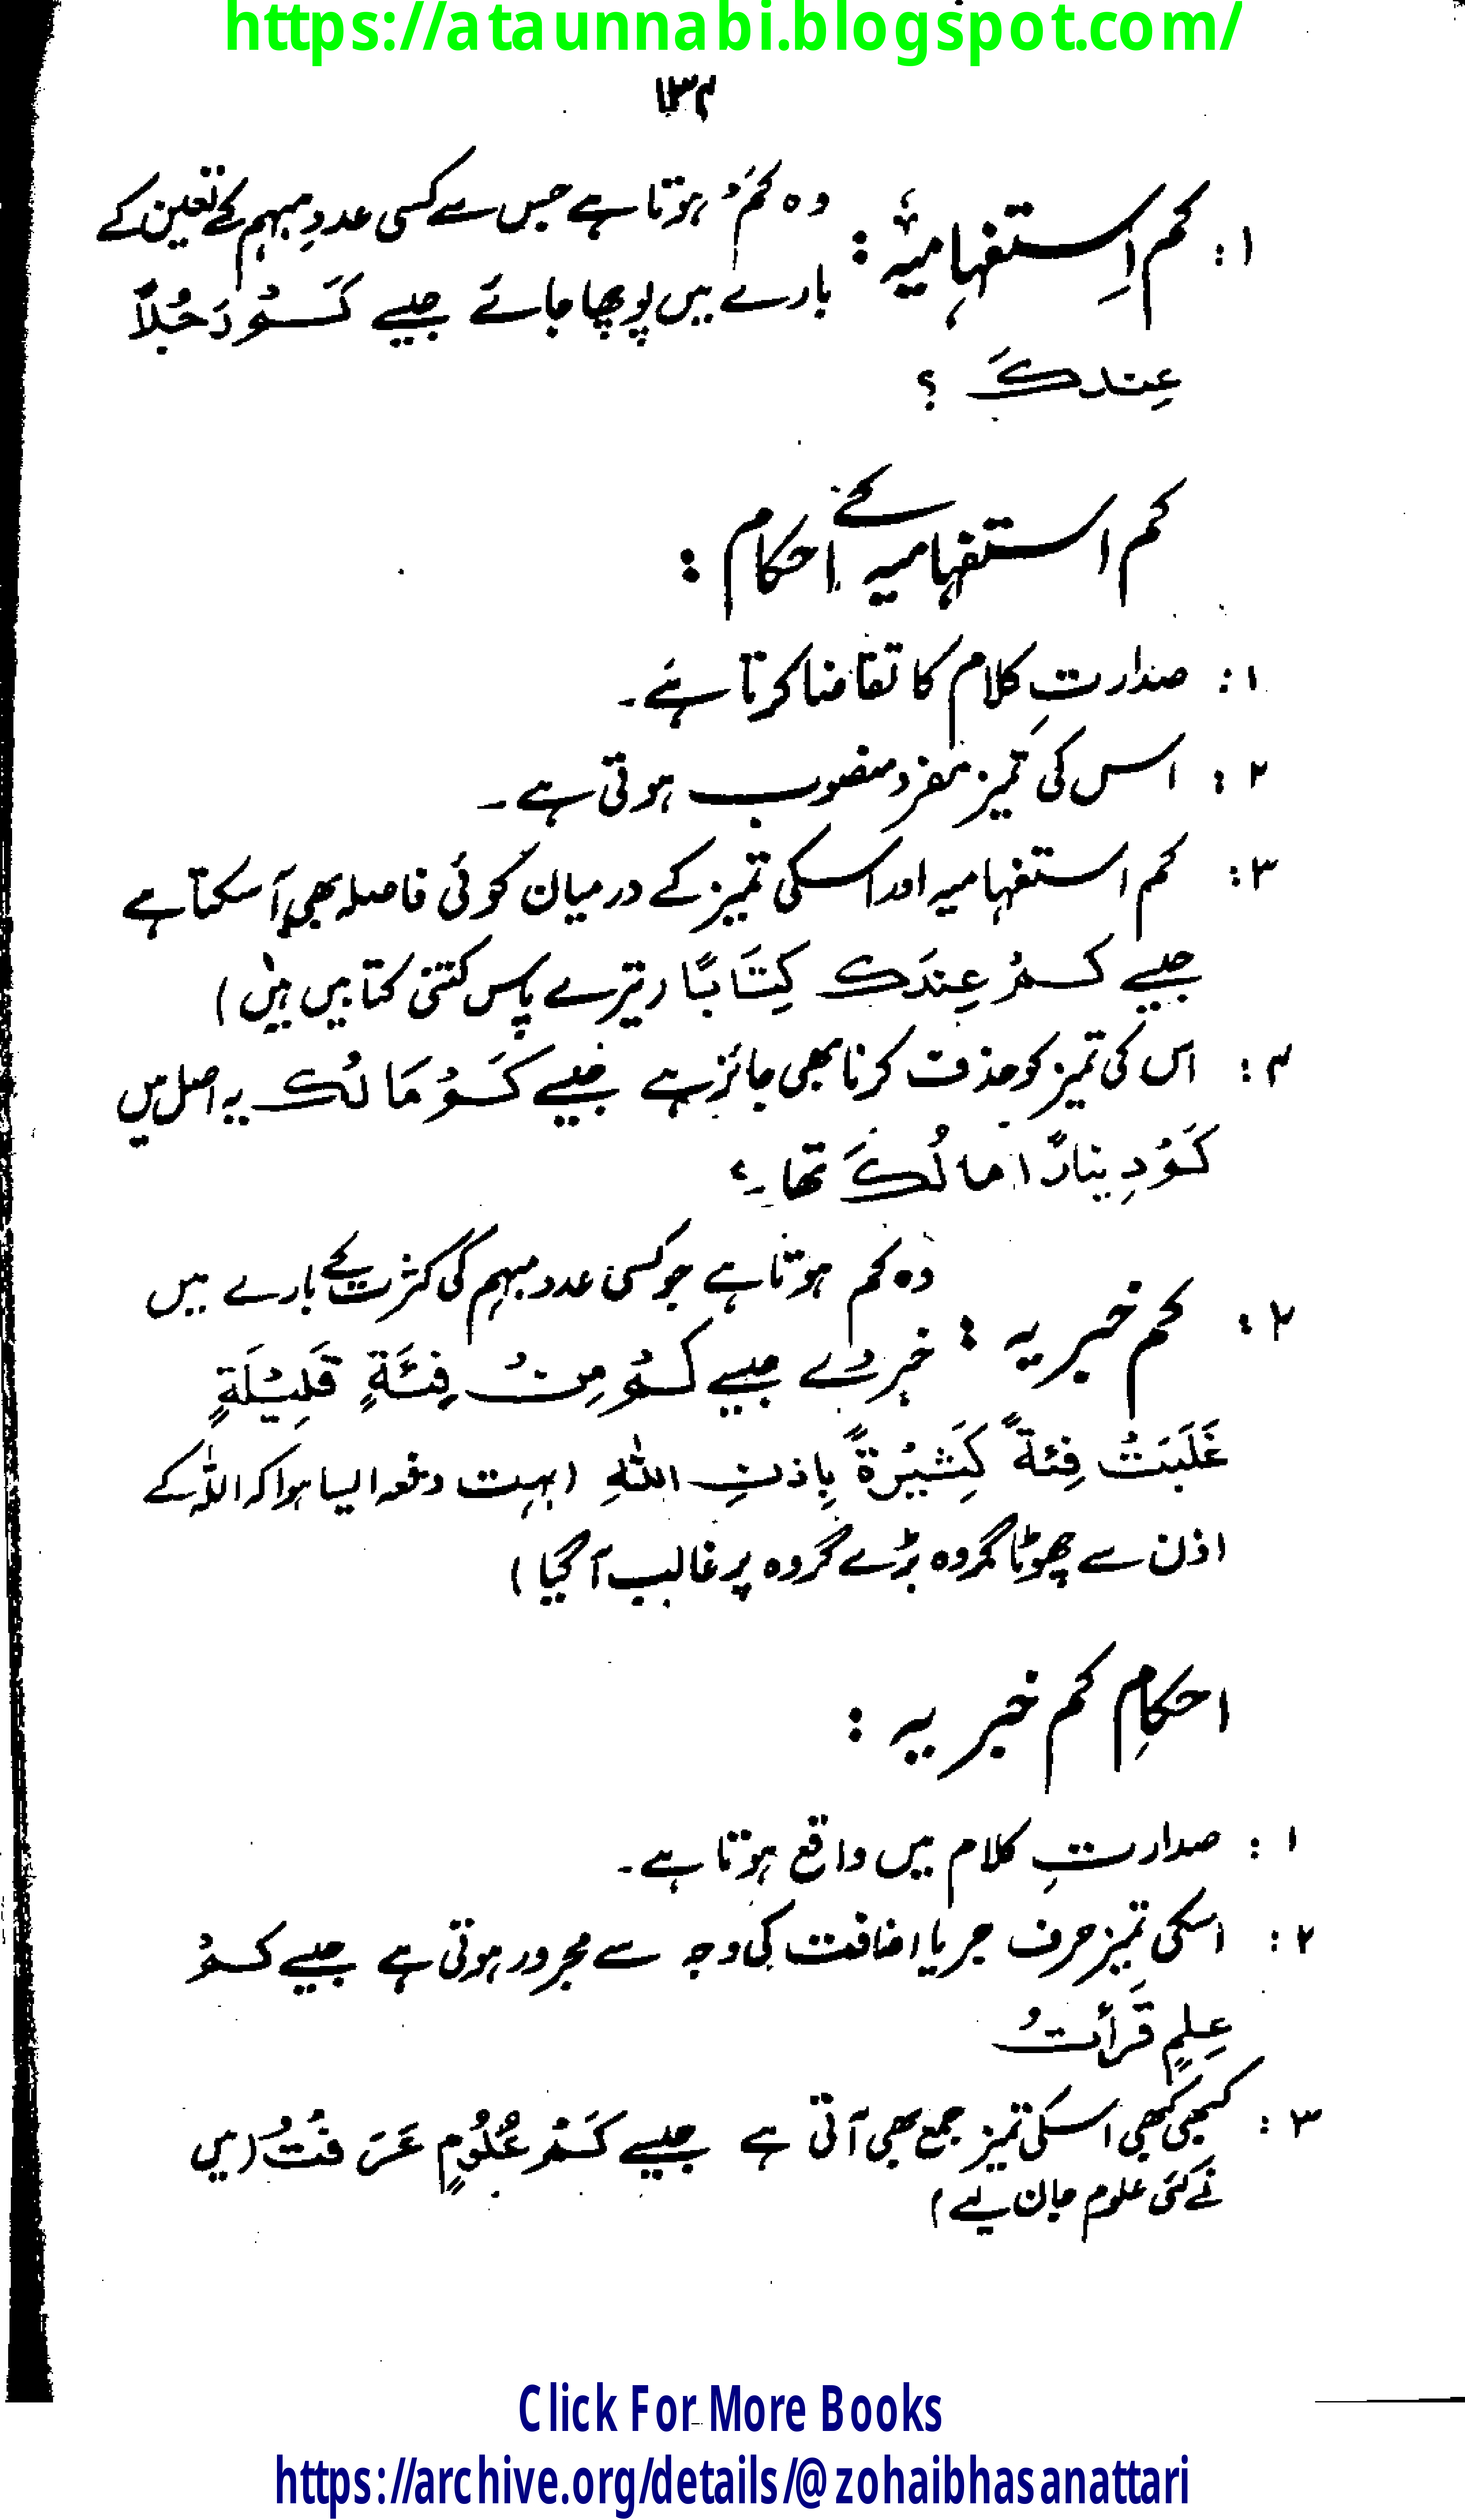 https://ataunnabi.blogspot.com/
۱۳۴
۱: کم اِستفہامِیہ: وہ کَمْ ہوتا ہے جس سے کسی عددِ مبہم کے تعین کے
بارے میں پوچھا جائے جیسے کَمْ رَجُلاً
عِندکَ ؟
کم استفہامیہ کے احکام:
۱: صدارتِ کلام کا تقاضا کرتا ہے۔
۲: اس کی تمیز مفرد منصوب ہوتی ہے۔
۳: کم استفہامیہ اور اسکی تمیز کے درمیان کوئی فاصلہ بھی آ سکتا ہے
جیسے کَمْ عِندَکَ کِتَابًا (تیرے پاس کتنی کتابیں ہیں)
۴: اس کی تمیز کو حذف کرنا بھی جائز ہے جیسے کَمْ مَا لُکَ یہ اصل میں
کَمْ دِینارًا مالُکَ تھا۔
۲: کم خبریہ: وہ کم ہوتا ہے جو کسی عدد مبہم کی کثرت کے بارے میں
خبر دے جیسے کَمْ مِنْ فِئَةٍ قَلِیْلَةٍ
غَلَبَتْ فِئةً کَثِیْرَةً بِاذنِ اللّٰهِ (بہت دفعہ ایسا ہوا کہ اللہ کے
اذن سے چھوٹا گروہ بڑے گروہ پر غالب آ گیا)
احکامِ کم خبریہ:
۱: صدارتِ کلام میں واقع ہوتا ہے۔
۲: اسکی تمیز حرف جر یا اضافت کی وجہ سے مجرور ہوتی ہے جیسے کَمْ
عِلمٍ قَرأتُ
۳: کبھی کبھی اسکی تمیز جمع بھی آتی ہے جیسے کَمْ عُلُوْمٍ عَرَفْتُ (میں
نے کئی علوم جان لیے)
Click For More Books
https://archive.org/details/@zohaibhasanattari